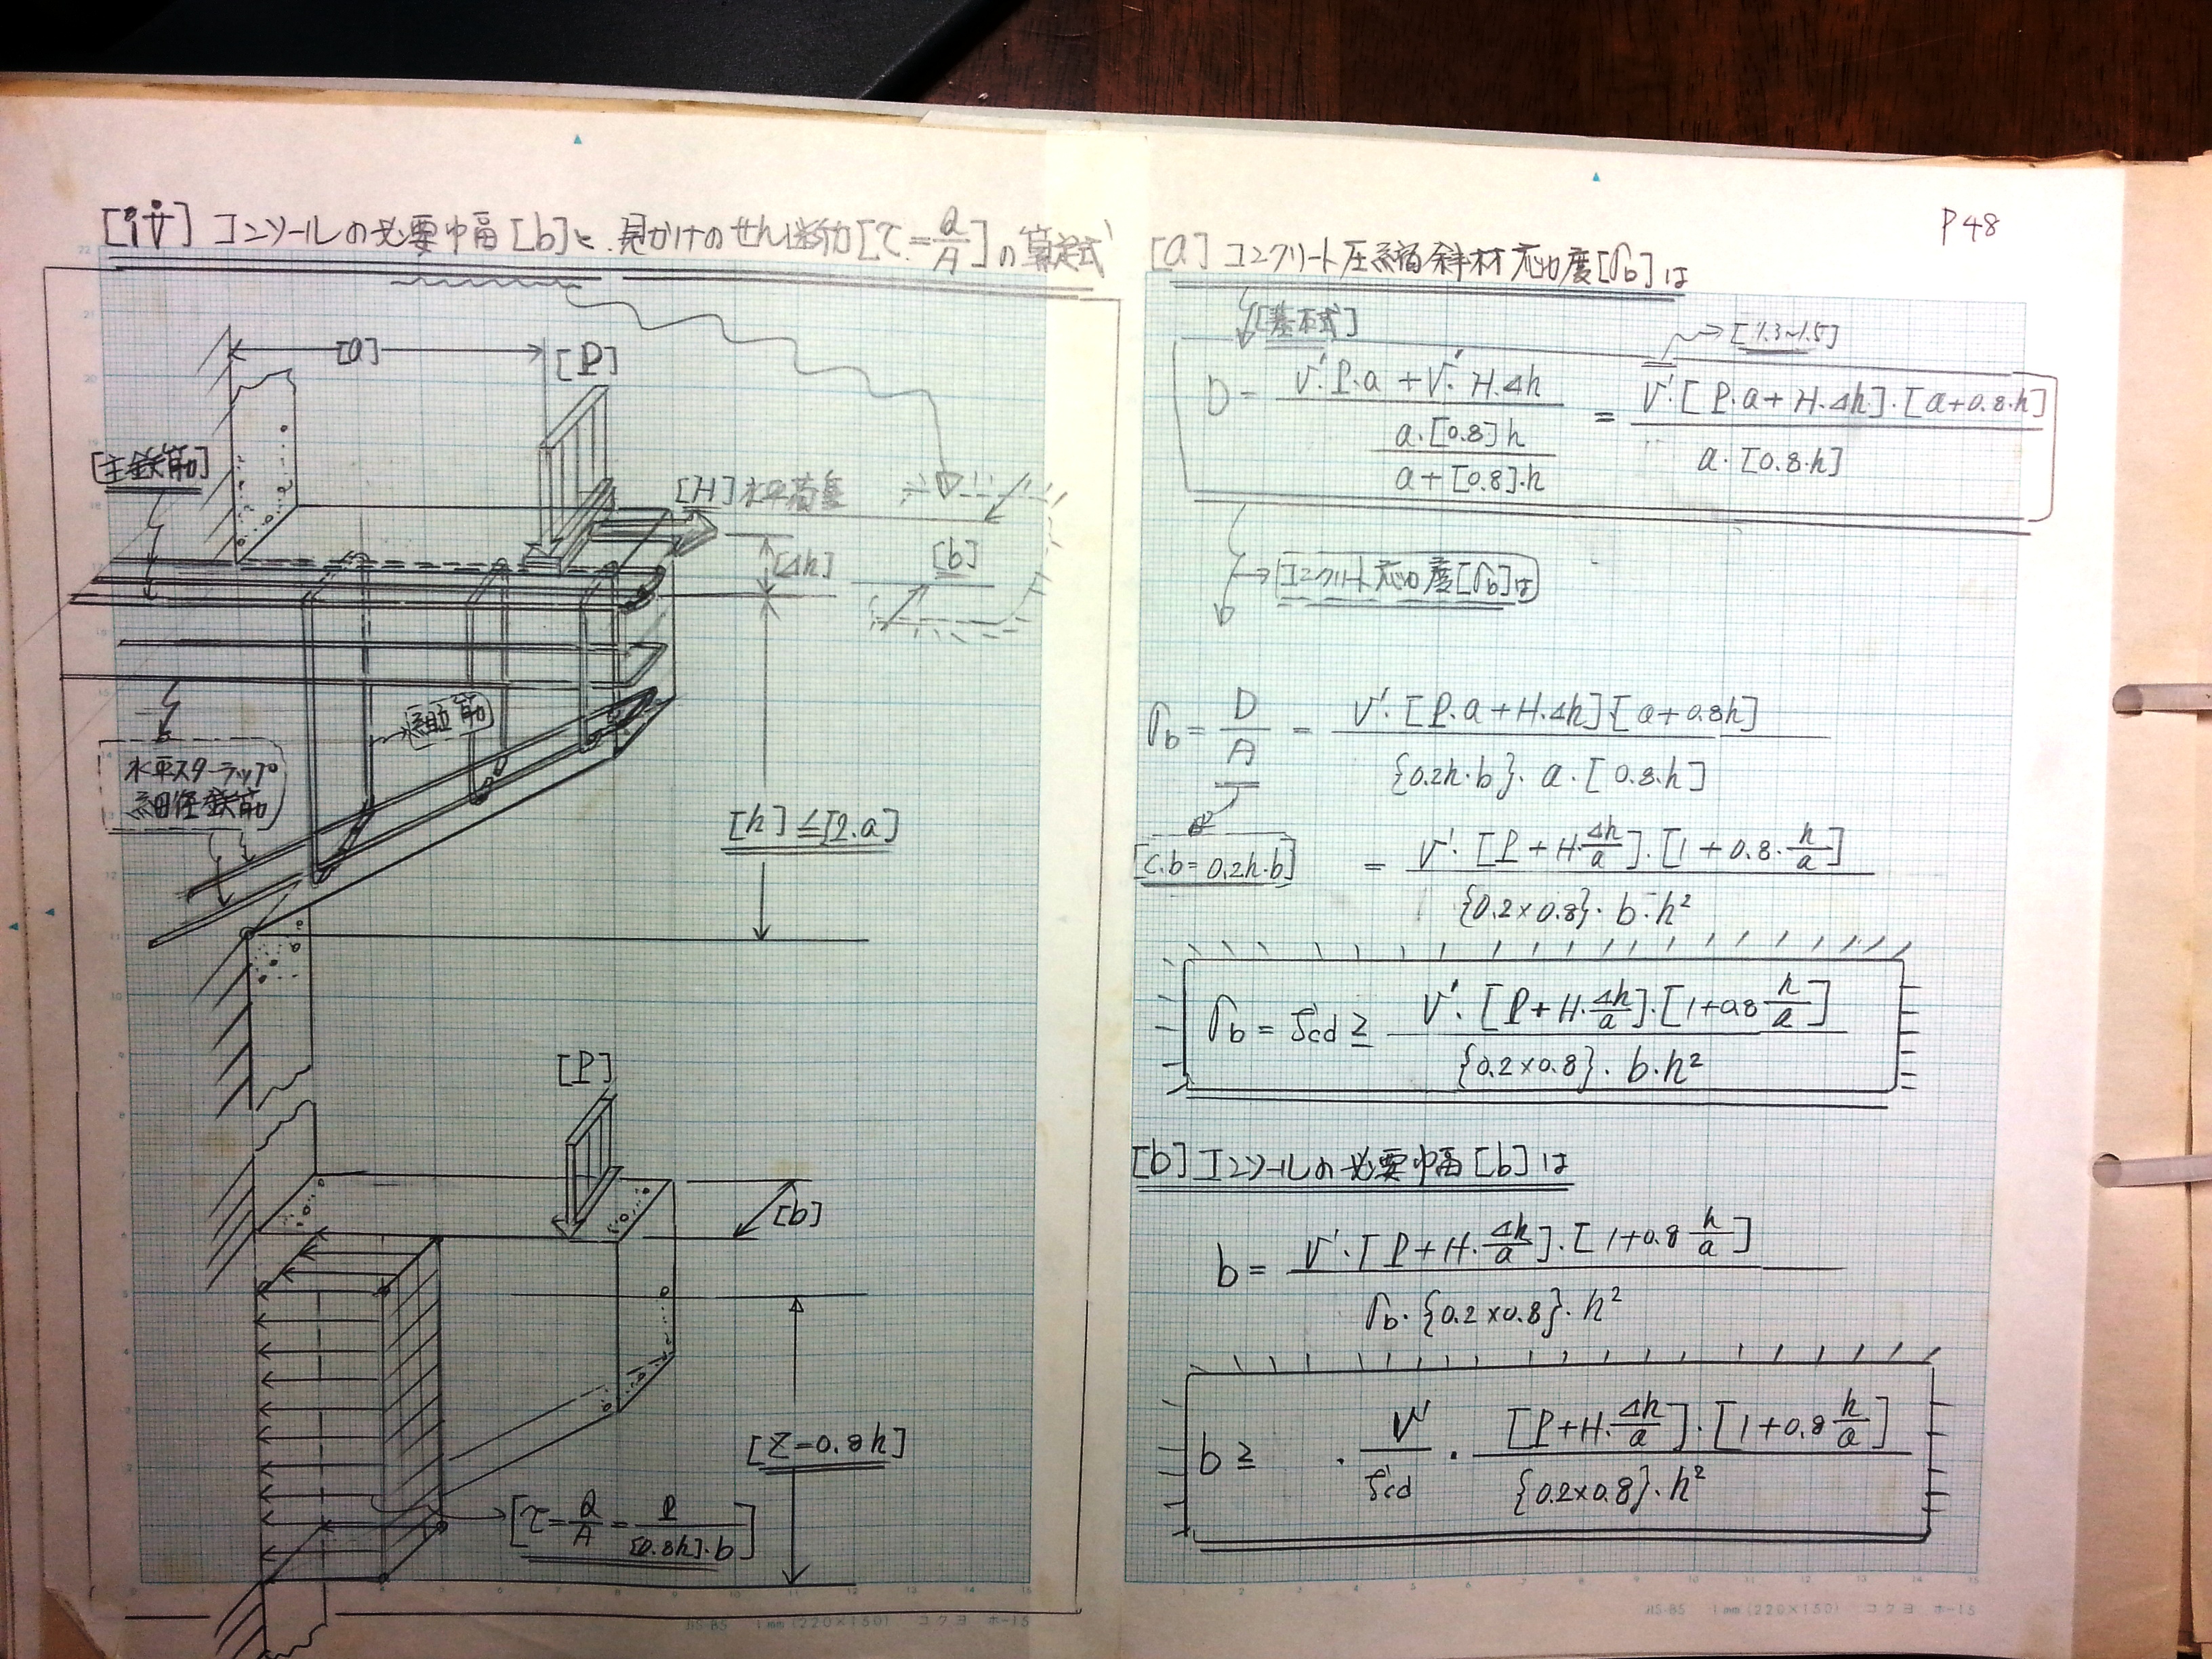 [iv] コンソールの必要巾畐[b]と、見かけのせん断力[τ=Q/A]の算定式
[a]
[P]
[主鉄筋]
[H]水平荷重
[Δh]
[b]
補助筋
水平スターラップ
細径鉄筋
[h]≦[2.a]
[P]
[b]
[Z=0.8h]
[τ=Q/A=P/[0.8h].b]
P48
[a] コンクリート圧縮斜材応力度[σb]は
[基本式]
[1.3~1.5]
D = (V'.P.a + V'.H.Δh) / (a.[0.8]h / a+[0.8].h) = V'.[P.a + H.Δh].[a+0.8.h] / a.[0.8.h]
コンクリート応力度[σb]は
σb = D/A = V'.[P.a + H.Δh].[a+0.8h] / {0.2h.b}.a.[0.8.h]
[c.b=0.2h.b]
= V'.[P+H.Δh/a].[1+0.8.h/a] / {0.2×0.8}.b.h²
σb = fcd ≧ V'.[P+H.Δh/a].[1+0.8 h/a] / {0.2×0.8}.b.h²
[b] コンソールの必要巾畐[b]は
b = V'.[P+H.Δh/a].[1+0.8 h/a] / σb.{0.2×0.8}.h²
b ≧ . V'/fcd . [P+H.Δh/a].[1+0.8 h/a] / {0.2×0.8}.h²
JIS-B5 1mm(220×150) コクヨ ホ-15
JIS-B5 1mm(220×150) コクヨ ホ-15